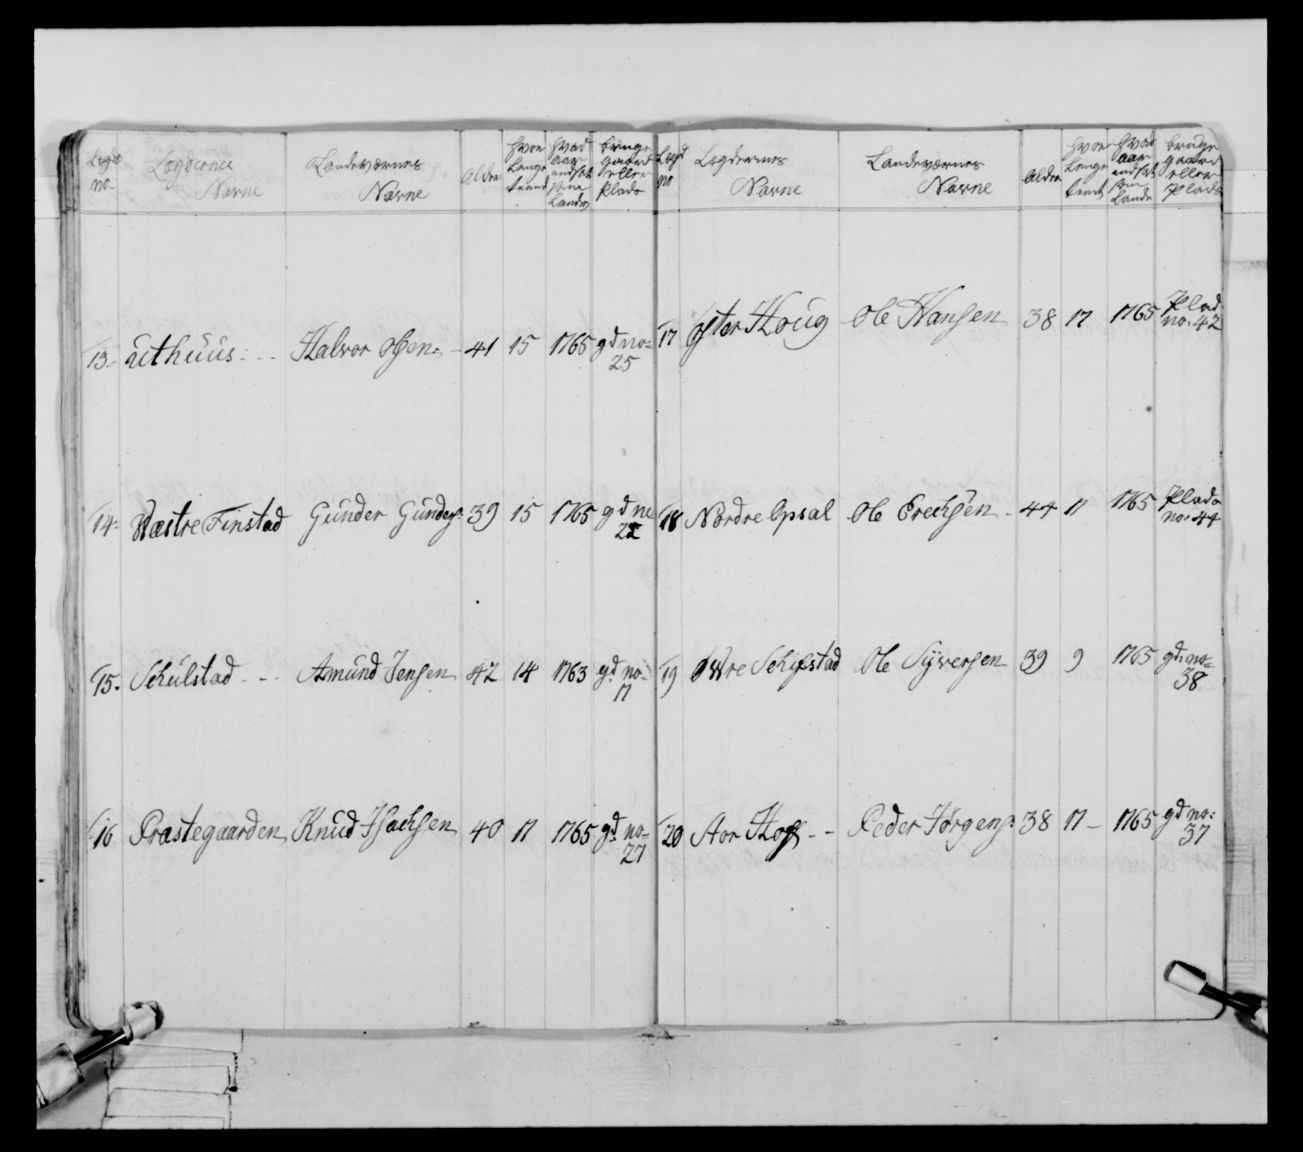 Legd no Legdernes Navne Landeværnes Navne Alder Hvor Længe tient Hvad aar andsat som Landv. bringe gaard eller Plads
13. Uthuus. - - Halvor Olsen. - 41 15 1765 gd no= 25
14: Wæstre Finstad Gunder Gunders: 39 15 1765 gd no
15. Schulstad - - Amund Jensen 42 14 1763 gd no= 17
16 Præstegaarden Knud Isachsen 40 17 1765 gd no= 27
Legd no Legdernes Navne Landeværnes Navne Alder Hvor Længe tient Hvad aar andsat som Landv bringe gaard eller Plads
17 Øster Houg Ole Hansen 38 17 1765 Plads no. 42
18 Nordre Opsal Ole Erechsen - 44 17 1765 Plads no. 44
19 Øvre Schystad Ole Syversen 39 9 1765 gd: no= 38
20 Stor Hoff - - Peder Jørgens: 38 17 - 1765 gd no: 37